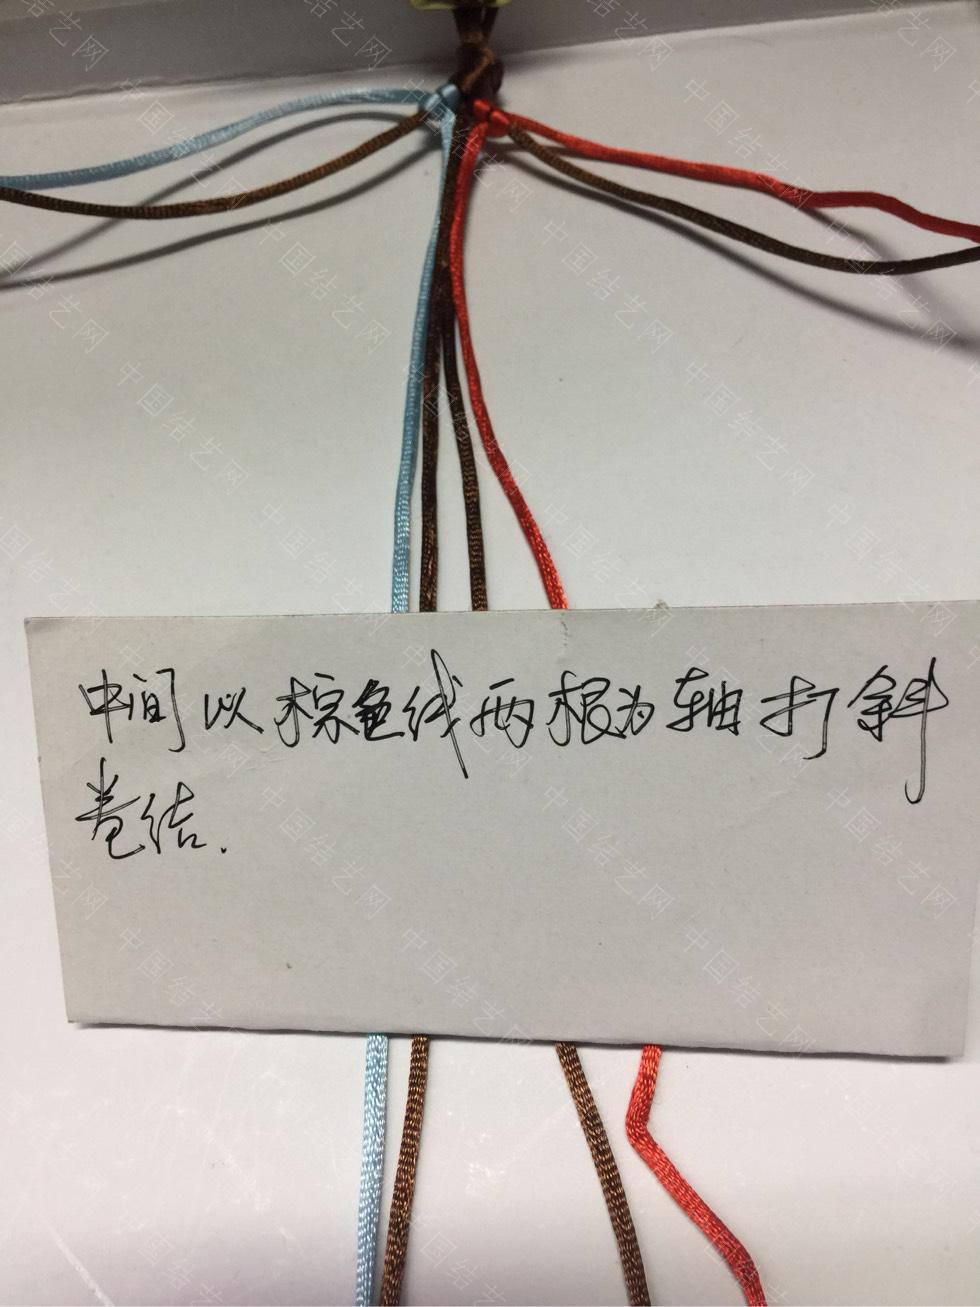 中间以棕色线两根为轴打斜
卷结.
中国结艺网